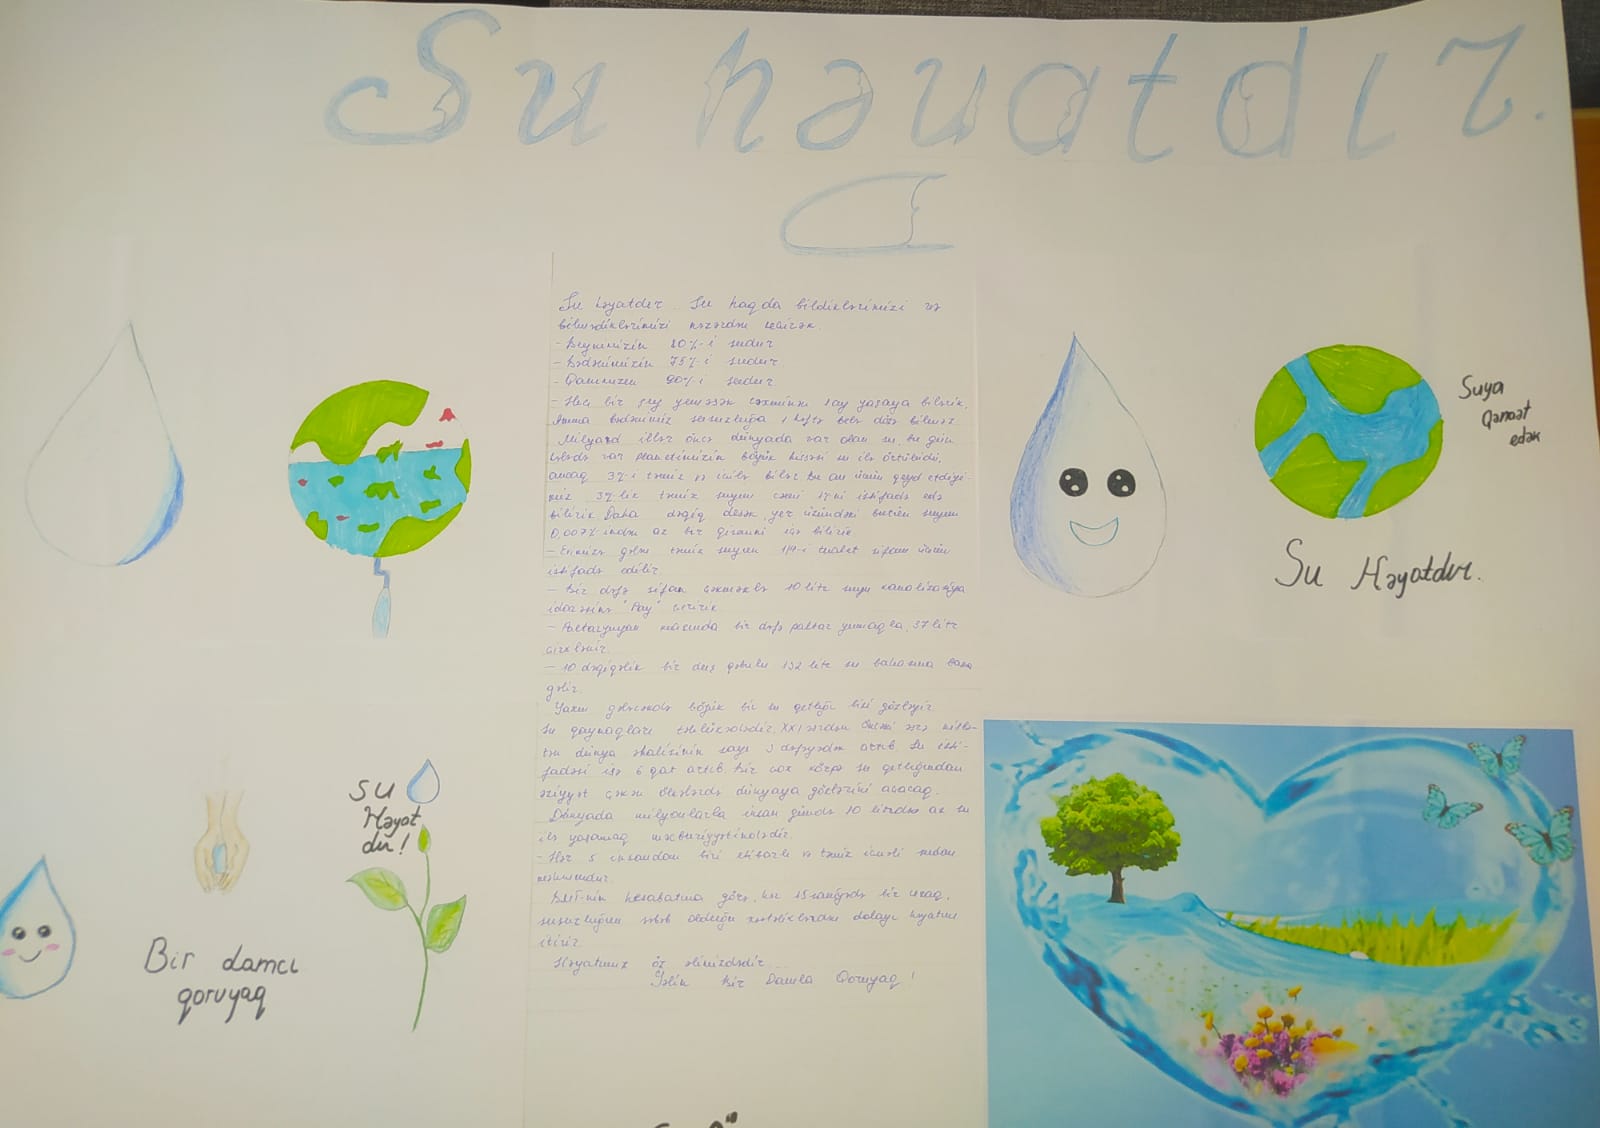 Su həyatdır.
Su həyatdır. Su haqda bildiklərimizi və
bilmədiklərimizi nəzərdən keçirək.
- Beynimizin 80%-i sudur
- Bədənimizin 75%-i sudur
- Qanımızın 90%-i sudur
- Heç bir şey yemәsәk təxminən 1 ay yaşaya bilərik,
Amma bədənimiz susuzluğa 1 həftə belə dözə bilməz
Milyard illər öncə dünyada var olan su, bu gün
belədə var planetimizin böyük hissəsi su ilə örtülüdü,
ancaq 3%-i təmiz və içilə bilər bu an üçün qeyd etdiyi-
miz 3%-lik təmiz suyun cəmi 1%-ni istifadə edə
bilirik Daha dəqiq desək, yer üzündəki bütün suyun
0,007%-indən az bir qismini içə bilirik
- Evinizə gələn təmiz suyun 1/4-i tualet sifonu üçün
istifadə edilir.
- Bir dəfə sifon çəkməklə 10 litr suyu kanalizasiya
idarəsinə "Pay" veririk
- Paltaryuyan maşında bir dəfə paltar yumaqla, 37 litr
çirklənir.
- 10 dəqiqəlik bir duş qəbulu 132 litr su bahasına başa
gəlir.
Yaxın gələcəkdə böyük bir su qıtlığı bizi gözləyir
Su qaynaqları təhlükədədir, XXI əsrdən
dünya əhalisinin sayı 3 dəfəyədək artıb. Su isti-
fadəsi isə 6 qat artıb. Bir çox körpə su qıtlığından
əziyyət çəkən ölkələrdə dünyaya gözlərini açacaq.
Dünyada milyonlarla insan gündə 10 litrdən az su
ilə yaşamaq məcburiyyətindədir.
- Hər 5 insandan biri etibarlı və təmiz içməli sudan
məhrumdur.
BMT-nin hesabatına görə, hər 15 saniyədə bir uşaq,
susuzluğun səbəb olduğu xəstəliklərdən dolayı həyatını
itirir
Həyatımız öz əlimizdədir....
Gəlin Bir Damla Qoruyaq!
Suya
Qənaət
edək
Su Həyatdır.
su
Həyat
dır!
Bir damcı
qoruyaq